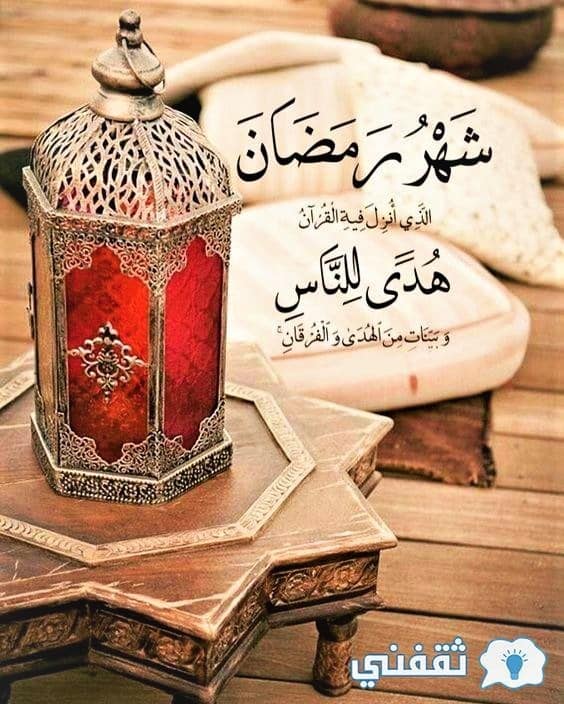 شَهْرُ رَمَضَانَ
الَّذِي أُنْزِلَ فِيهِ الْقُرْآنُ
هُدًى لِلنَّاسِ
وَبَيِّنَاتٍ مِنَ الْهُدَىٰ وَالْفُرْقَانِ ۚ
ثقفني